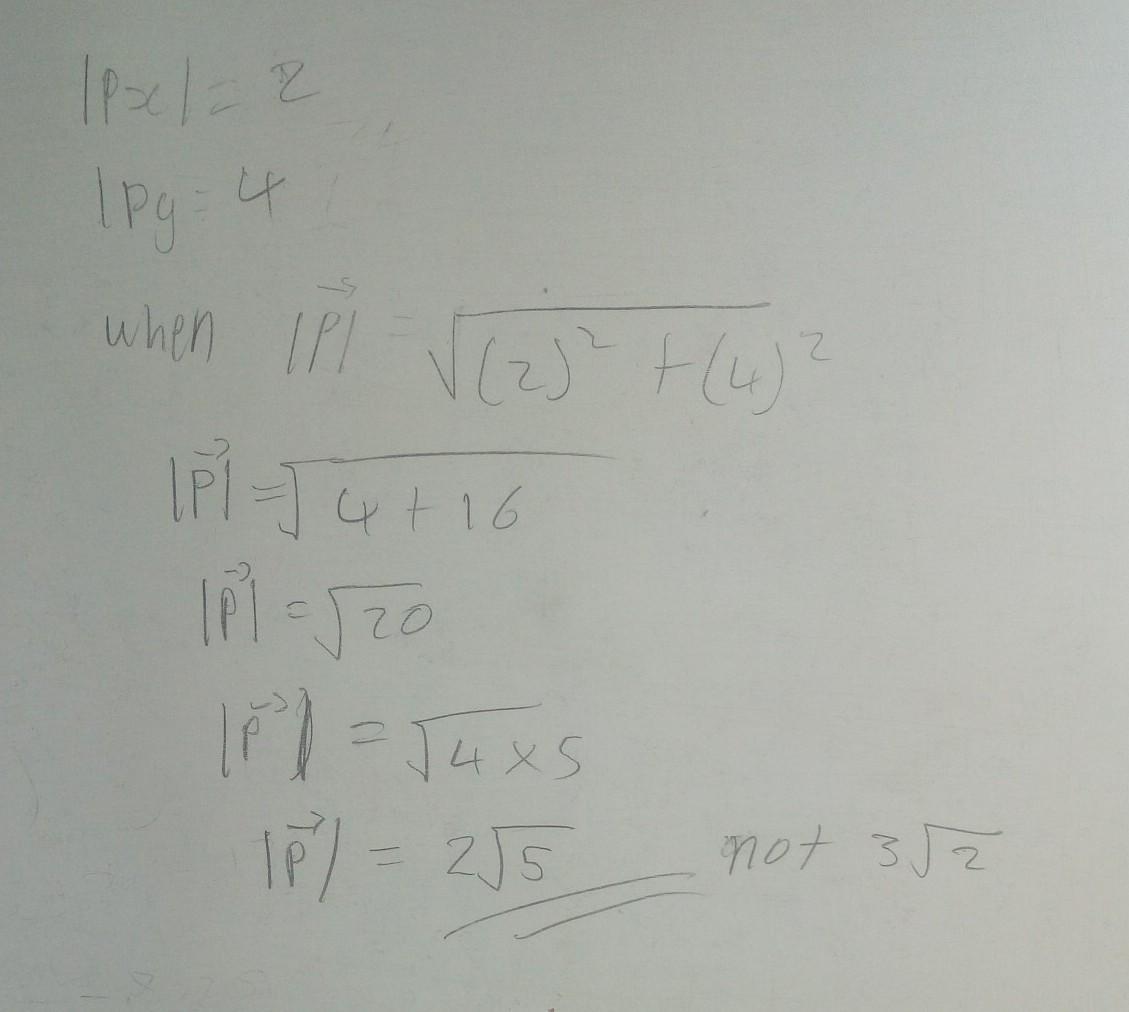 |Px| = 2
|Py = 4
when |P⃗| = √(2)² + (4)²
|P⃗| = √4 + 16
|P⃗| = √20
|P⃗| = √4 × 5
|P⃗| = 2√5 not 3√2